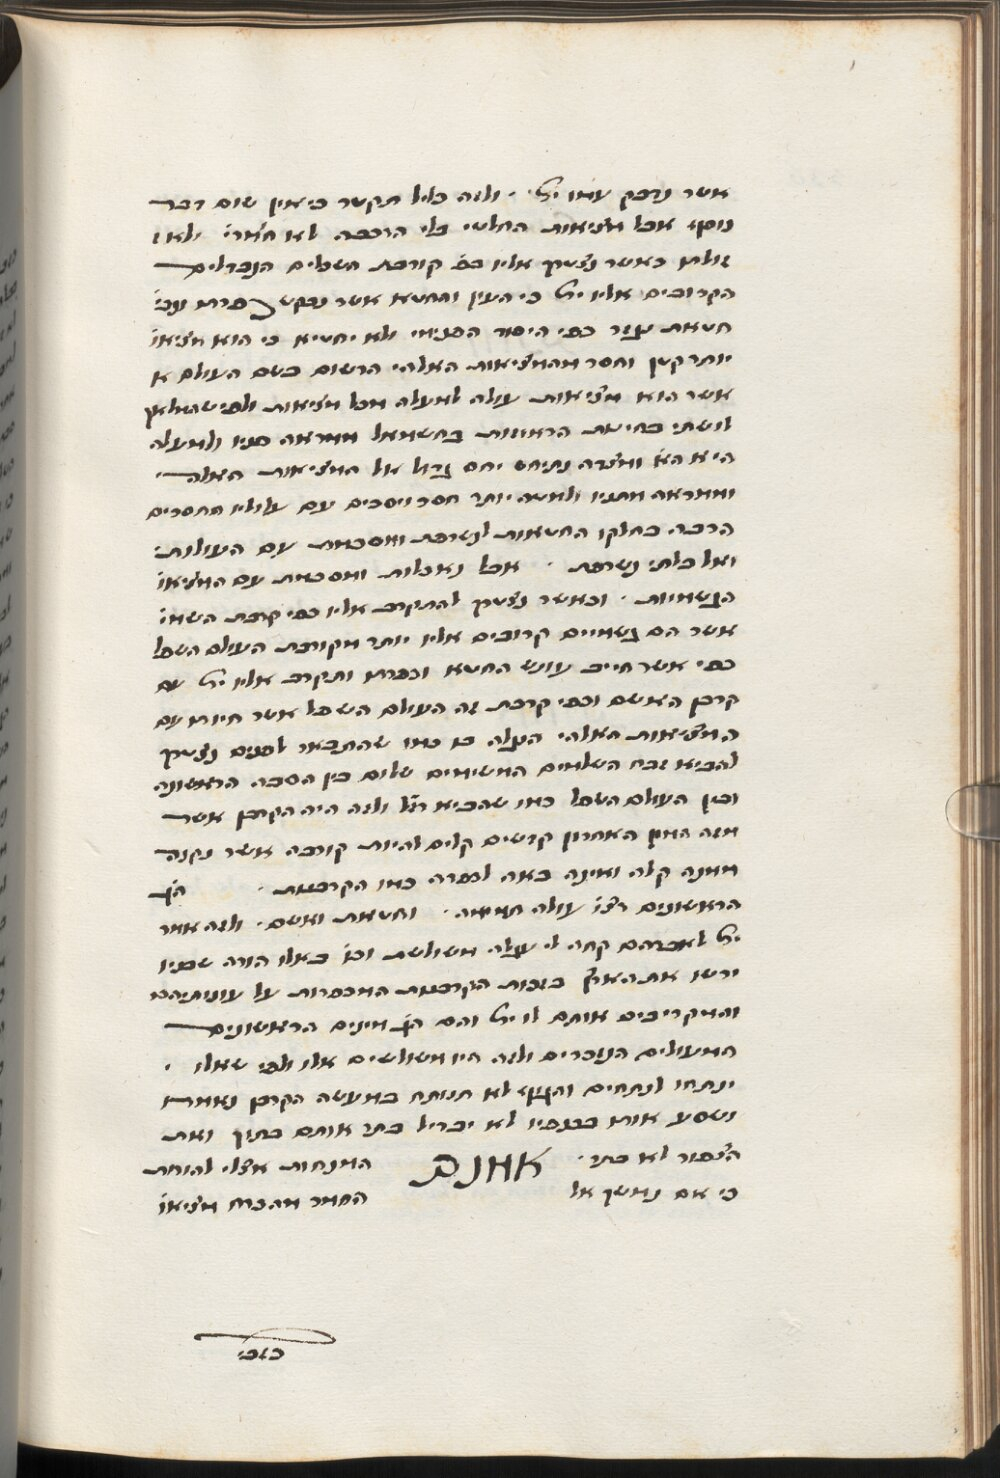 אשר נדבק עמו ית' · ולזה כליל תקטר כי אין שום דבר
נוסף אבל מציאות החלטי בלי הרכבה לא חמרי' ולא
זולתו כאשר נצטרך אליו כפי קורבת השכלים הנבדלים
הקרובים אליו ית' כי העין והחטא אשר נבקש כפרתו
חטאת כפי היסוד ולא יחטיא כי הוא מציאו'
יותר קטן וחסר מהמציאות האלהי הרשום בשם העולם א
אשר הוא מציאות עולה למעלה מכל מציאות ולפי
לשתי בחינות הראיות בחשמאל ממראה מתניו ולמעלה
היא נתיחס יחס גדול אל המציאות האלהי
וממראה מתניו ולמטה יותר חסר ויסכים עם עלוליו החסרים
הרבה בחלקו החטאות לנשרפת ומסכמת עם העולות
ואל בלתי נשרפת · אבל נאכלות ומסכמת עם המציאו'
הגשמיות · וכאשר נצטרך להתקרב אליו כפי קרבת השמי'
אשר הם גשמיים קרובים אליו יותר מקורבת העולם השפל
כפי אשר חייב עונש החטא וכפרתו ותקרב אליו ית' עם
קרבן האשם וכפי קרבת זה העולם השפל אשר חיותו עם
המציאות האלהי העלה בו כמו שהתבאר לפנים נצטרך
להביא זבח השלמים המשימים שלום בין הסבה הראשונה
ובין העולם השפל כמו שהביא רז"ל ולזה היה הקרבן אשר
מזה המין האחרון קדשים קלים להיות קורבה אשר נקנה
ממנה קלה ואינה באה לכפרה כמו הקרבנות · הג'
הראשונים רצו' עולה תמימה · וחטאת ואשם · ולזה אמר
ית' לאברהם קחה לי עגלה משולשת וכו' כאלו הורה שבניו
ירשו את הארץ בזכות הקרבנות המכפרות על עונותיהם
והמקריבים אותם לו ית' והם הג' מינים הראשונים
המעולים הנזכרים ולזה היו משולשים אלו ולפי שאלו ·
ינתחו לנתחים והעוף לא תנותח במעשה הקרבן נאמר
ושסע אותו בכנפיו לא יבדיל בתר אותם בתוך ואת
הצפור לא בתר · אמנם המנחות אצלי להיות
כי אם נמשך אל החמר מהכרח מציאו'
כזבי